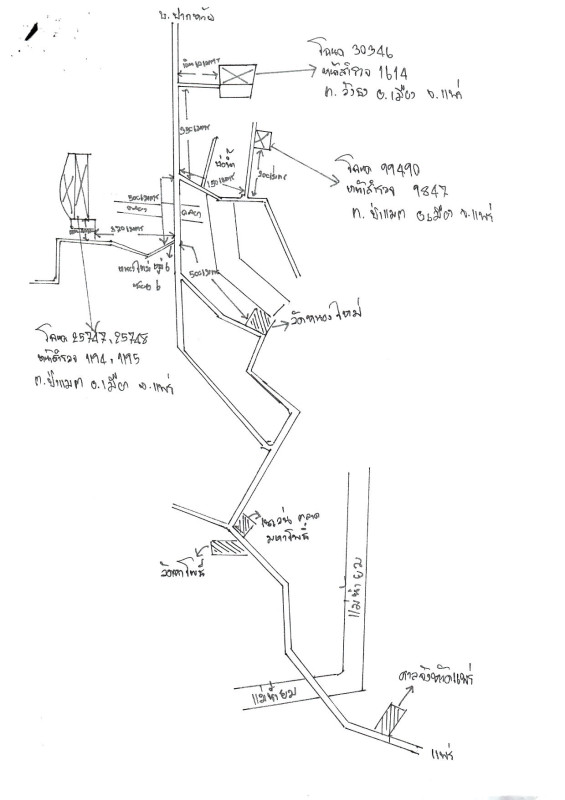 บ.ปากห้วย
โฉนด 30346
หน้าสำรวจ 1614
ต. วังธง อ.เมือง จ.แพร่
350 เมตร
บ่อน้ำ
150 เมตร
โฉนด 99490
หน้าสำรวจ 9847
ต. ป่าแมต อ.เมือง จ.แพร่
500 เมตร
ซอย 6
วัดหนองใหม่
โฉนด 25747, 25748
หน้าสำรวจ 1194, 1195
ต.ป่าแมต อ.เมือง จ.แพร่
มหาโพธิ์
แม่น้ำยม
แม่น้ำยม
ศาลจังหวัดแพร่
แพร่